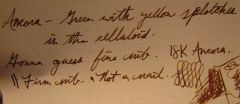 Ancora - Green with yellow splotches
in the celluloid.
Gonna guess fine nib. 18K Ancora.
" Firm nib. " Not a